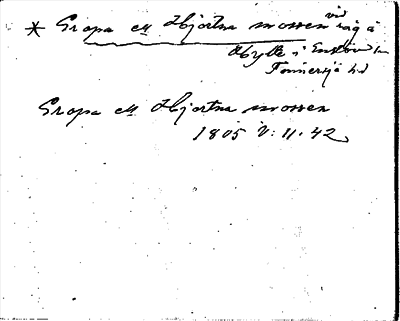 * Gropa el Hjortna mossen vid väg å
Hylte i Enslöv sn
Tönnersjö hd
Gropa el Hjortna mossen
1805 V: 11. 42